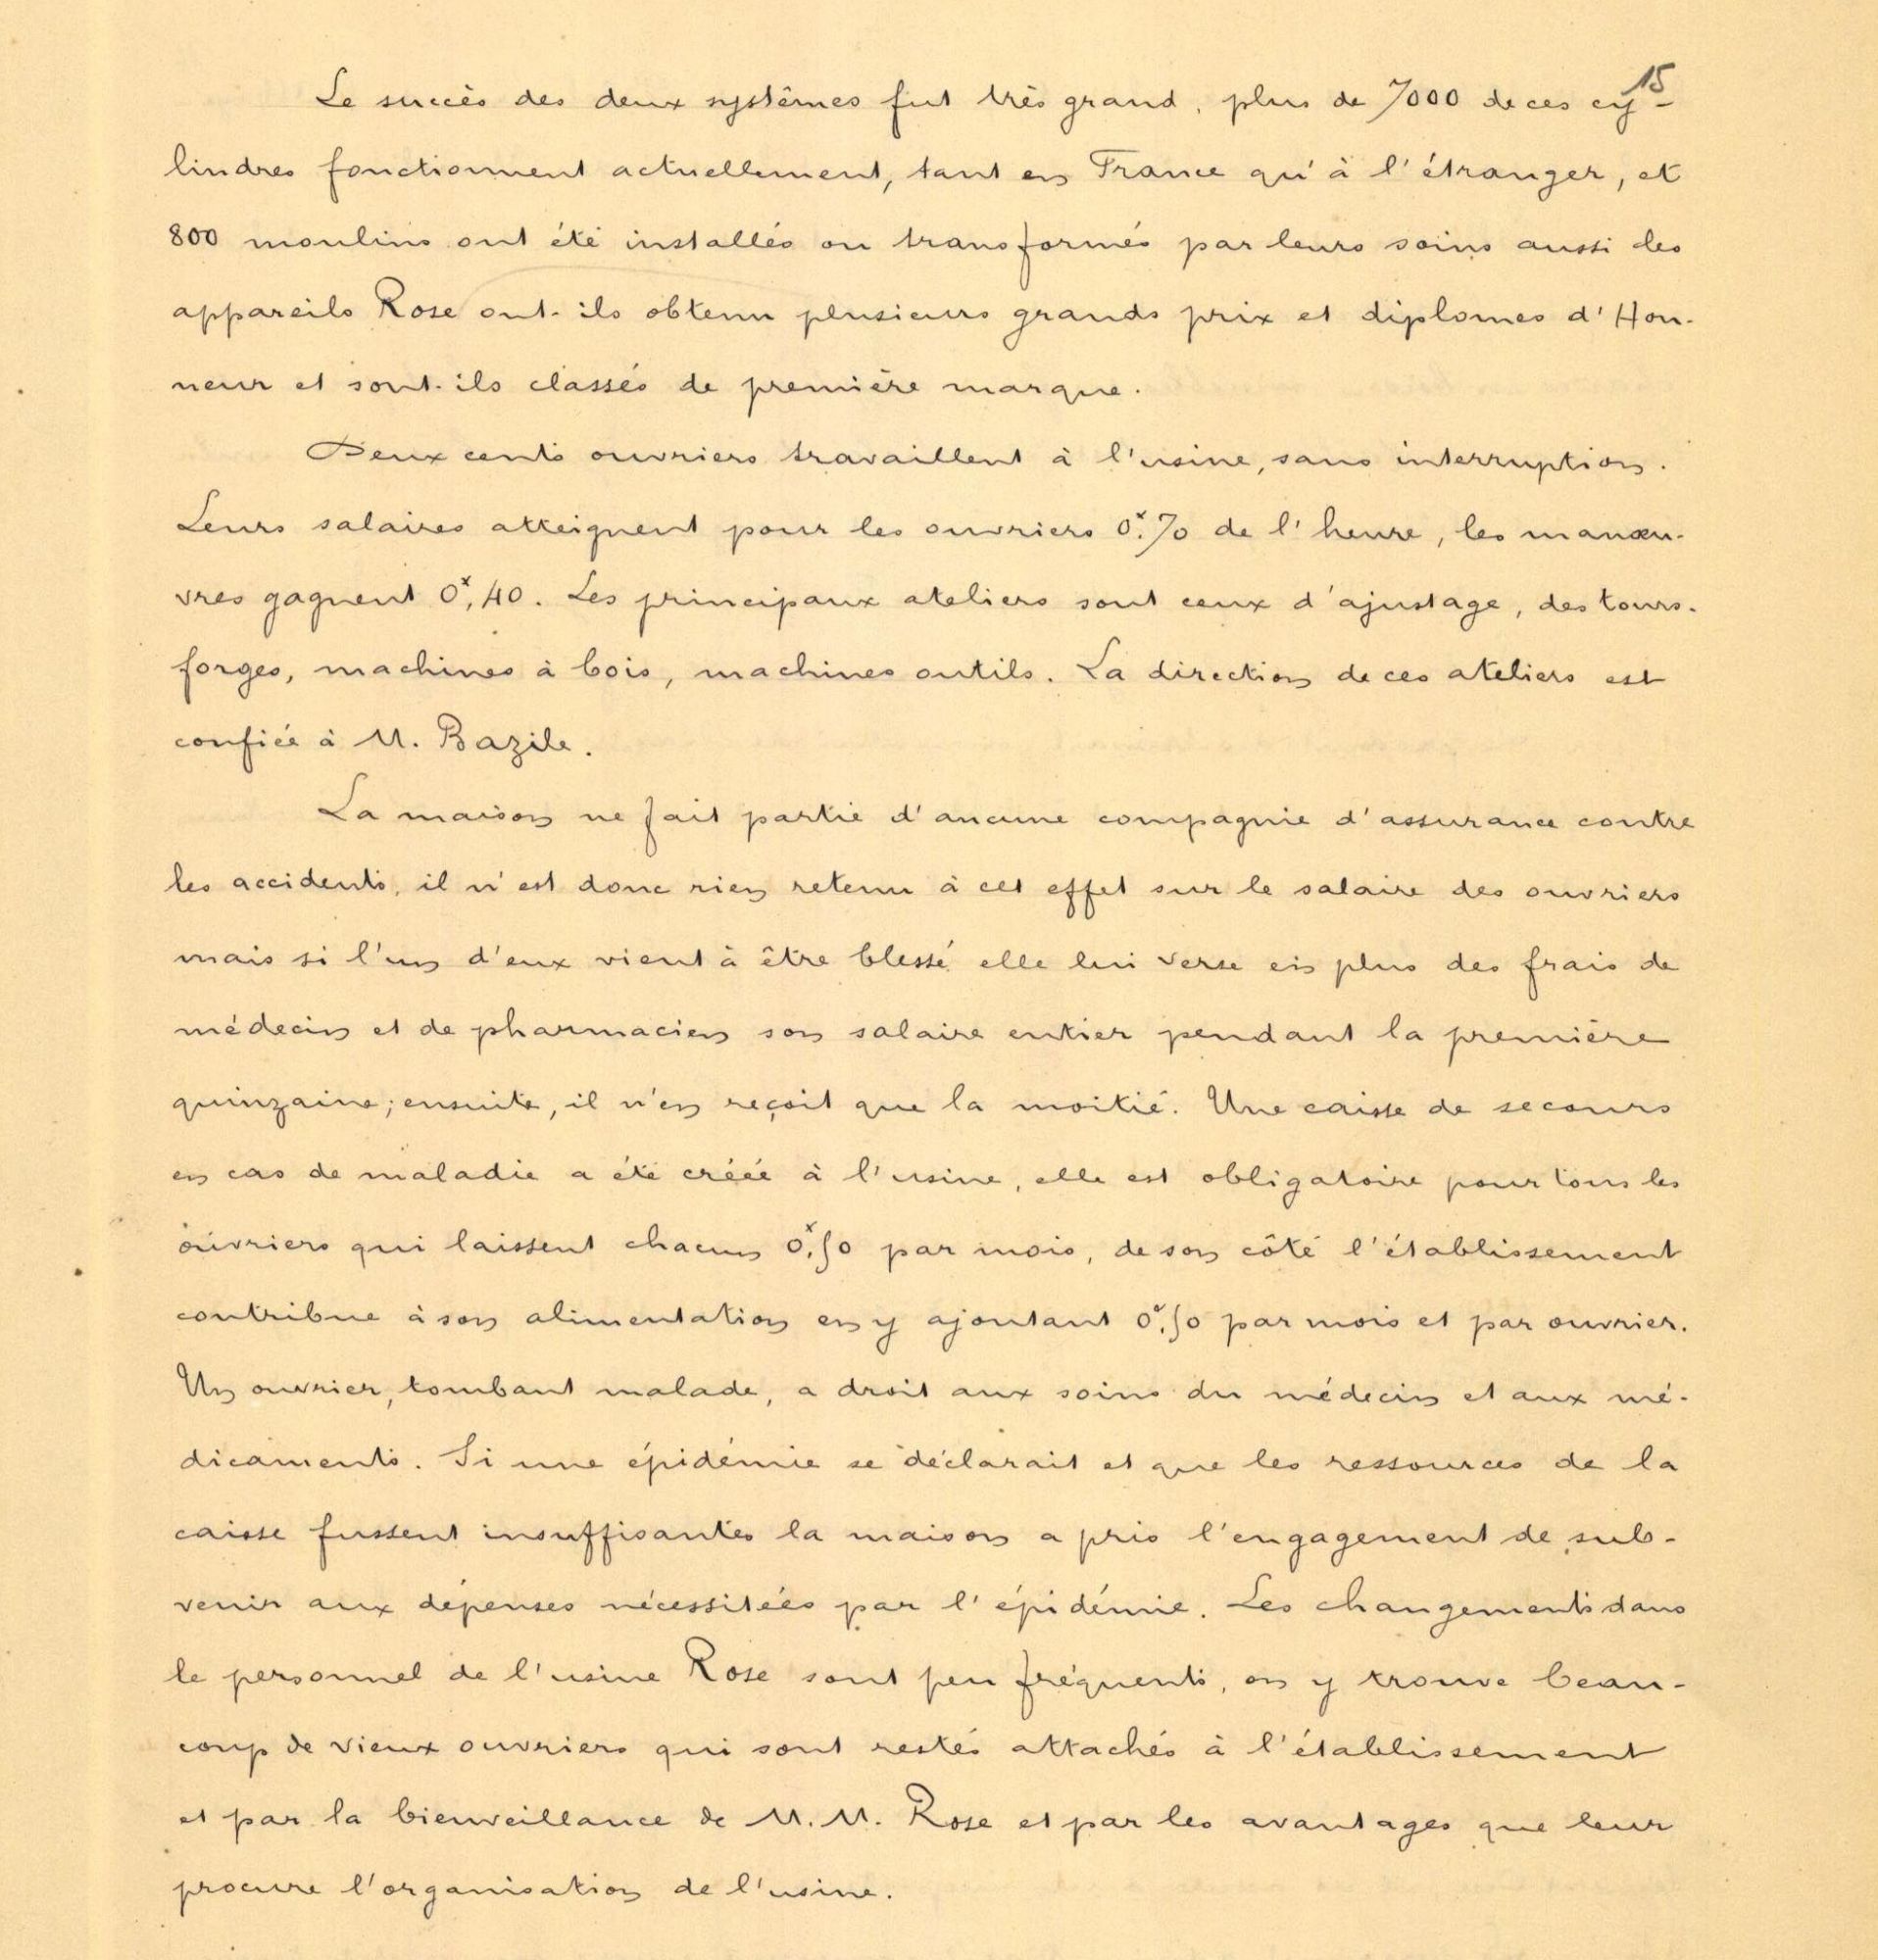 15
Le succès des deux systêmes fut très grand, plus de 7000 de ces cy-
lindres fonctionnent actuellement, tant en France qu'à l'étranger, et
800 moulins ont été installés ou transformés par leurs soins aussi les
appareils Rose ont-ils obtenu plusieurs grands prix et diplomes d'Hon-
neur et sont-ils classés de première marque.
Deux cents ouvriers travaillent à l'usine, sans interruption.
Leurs salaires atteignent pour les ouvriers 0f,70 de l'heure, les manœu-
vres gagnent 0f,40. Les principaux ateliers sont ceux d'ajustage, des tours-
forges, machines à bois, machines outils. La direction de ces ateliers est
confiée à M. Bazile.
La maison ne fait partie d'aucune compagnie d'assurance contre
les accidents, il n'est donc rien retenu à cet effet sur le salaire des ouvriers
mais si l'un d'eux vient à être blessé elle lui verse en plus des frais de
médecin et de pharmacien son salaire entier pendant la première
quinzaine; ensuite, il n'en reçoit que la moitié. Une caisse de secours
en cas de maladie a été créée à l'usine, elle est obligatoire pour tous les
ouvriers qui laissent chacun 0f,50 par mois, de son côté l'établissement
contribue à son alimentation en y ajoutant 0f,50 par mois et par ouvrier.
Un ouvrier, tombant malade, a droit aux soins du médecin et aux mé-
dicaments. Si une épidémie se déclarait et que les ressources de la
caisse fussent insuffisantes la maison a pris l'engagement de sub-
venir aux dépenses nécessitées par l'épidémie. Les changements dans
le personnel de l'usine Rose sont peu fréquents, on y trouve beau-
coup de vieux ouvriers qui sont restés attachés à l'établissement
et par la bienveillance de M.M. Rose et par les avantages que leur
procure l'organisation de l'usine.